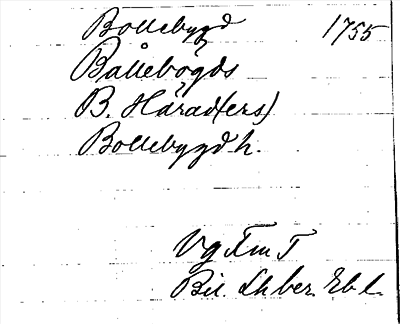 Bollebygd 1755
Bållebögds
B. Härad(ers)
Bollebygd h.
Vg Fm T
Bil. Lhber. Ebl.